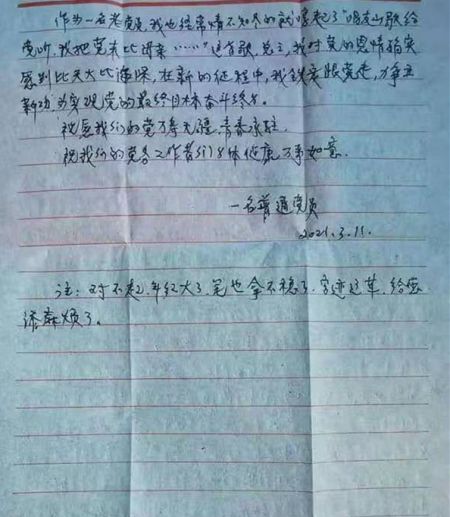 作为一名老党员,我也经常情不知不的就嚎起了“唱支山歌给
党听,我把党来比母亲……”这首歌,总之,我对党的恩情确实
感到比天大比海深,在新的征程中,我铁定跟党走,力争立
新功,为实现党的最终目标奋斗终身。
祝愿我们的党万寿无疆,青春永驻。
祝我们的党务工作者们身体健康,万事如意。
一名普通党员
2021.3.11.
注:对不起,年纪大了,笔也拿不稳了,字迹过草,给您
添麻烦了。